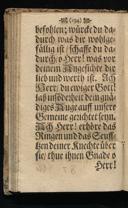 (134)
befohlen; würde du da-
durch was dir wohlge-
fällig ist / schaffe du da-
durch, o Herr! was vor
deinem Angesichte dir
lieb und werth ist. Ach
Herr! du ewiger Gott!
laß insonderheit dein gnä-
diges Auge auff unsere
Gemeine gerichtet seyn.
Ach Herr! erhöre das
Ringen und das Seuff-
tzen deiner Knechte über
sie; thue ihnen Gnade o
Herr!